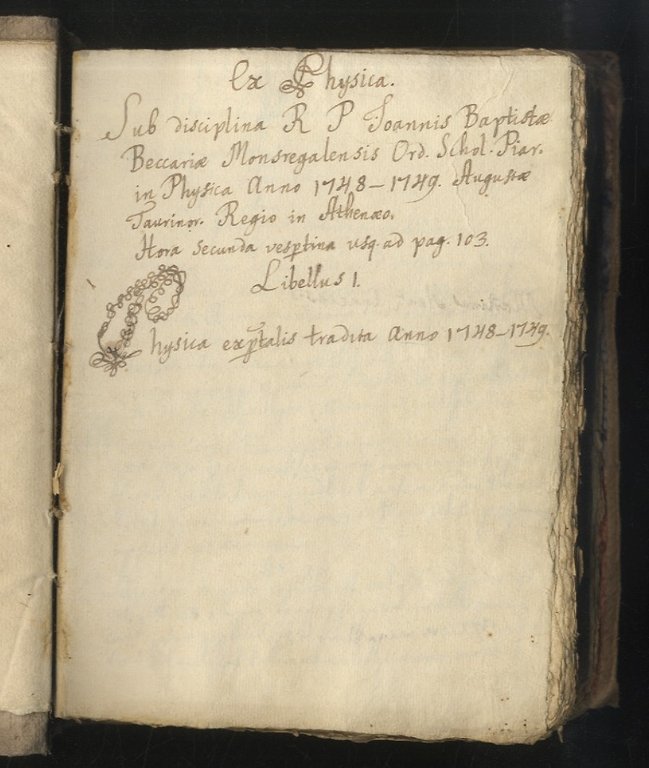 Ex Physica.
Sub disciplina R P Joannis Baptistæ
Beccariæ Monsregalensis Ord. Schol. Piar.
in Physica Anno 1748-1749. Augustæ
Taurinor. Regio in Athenæo.
Hora secunda vespertina usq. ad pag. 103.
Libellus 1.
Physica exptalis tradita Anno 1748-1749.